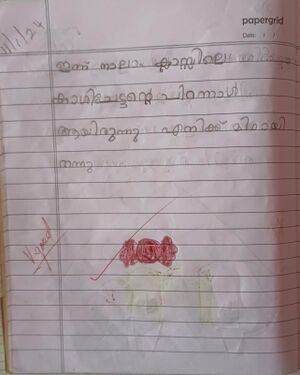 papergrid
Date: / /
11/1/24
ഇന്ന് നാലാം ക്ലാസ്സിലെ
കാശിചേട്ടന്റെ പിറന്നാൾ
ആയിരുന്നു എനിക്ക് മിഠായി
തന്നു
V.good